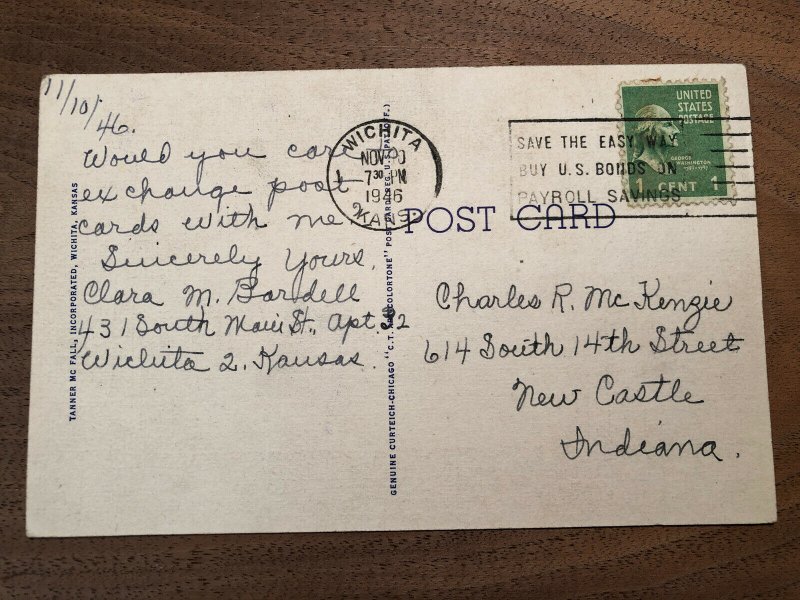 11/10/46.
Would you care to
exchange post
cards with me.
Sincerely Yours,
Clara M. Bardell
431 South Main St., Apt. 32
Wichita 2. Kansas.
TANNER MC FALL, INCORPORATED, WICHITA, KANSAS
GENUINE CURTEICH-CHICAGO "C.T. COLORTONE" POST CARD (REG. U.S. PAT. OFF.)
WICHITA
NOV 10
7 30 PM
1946
2 KANS
SAVE THE EASY WAY
BUY U.S. BONDS ON
PAYROLL SAVINGS
UNITED
STATES
POSTAGE
GEORGE
WASHINGTON
1 CENT 1
POST CARD
Charles R. McKenzie
614 South 14th Street
New Castle
Indiana.